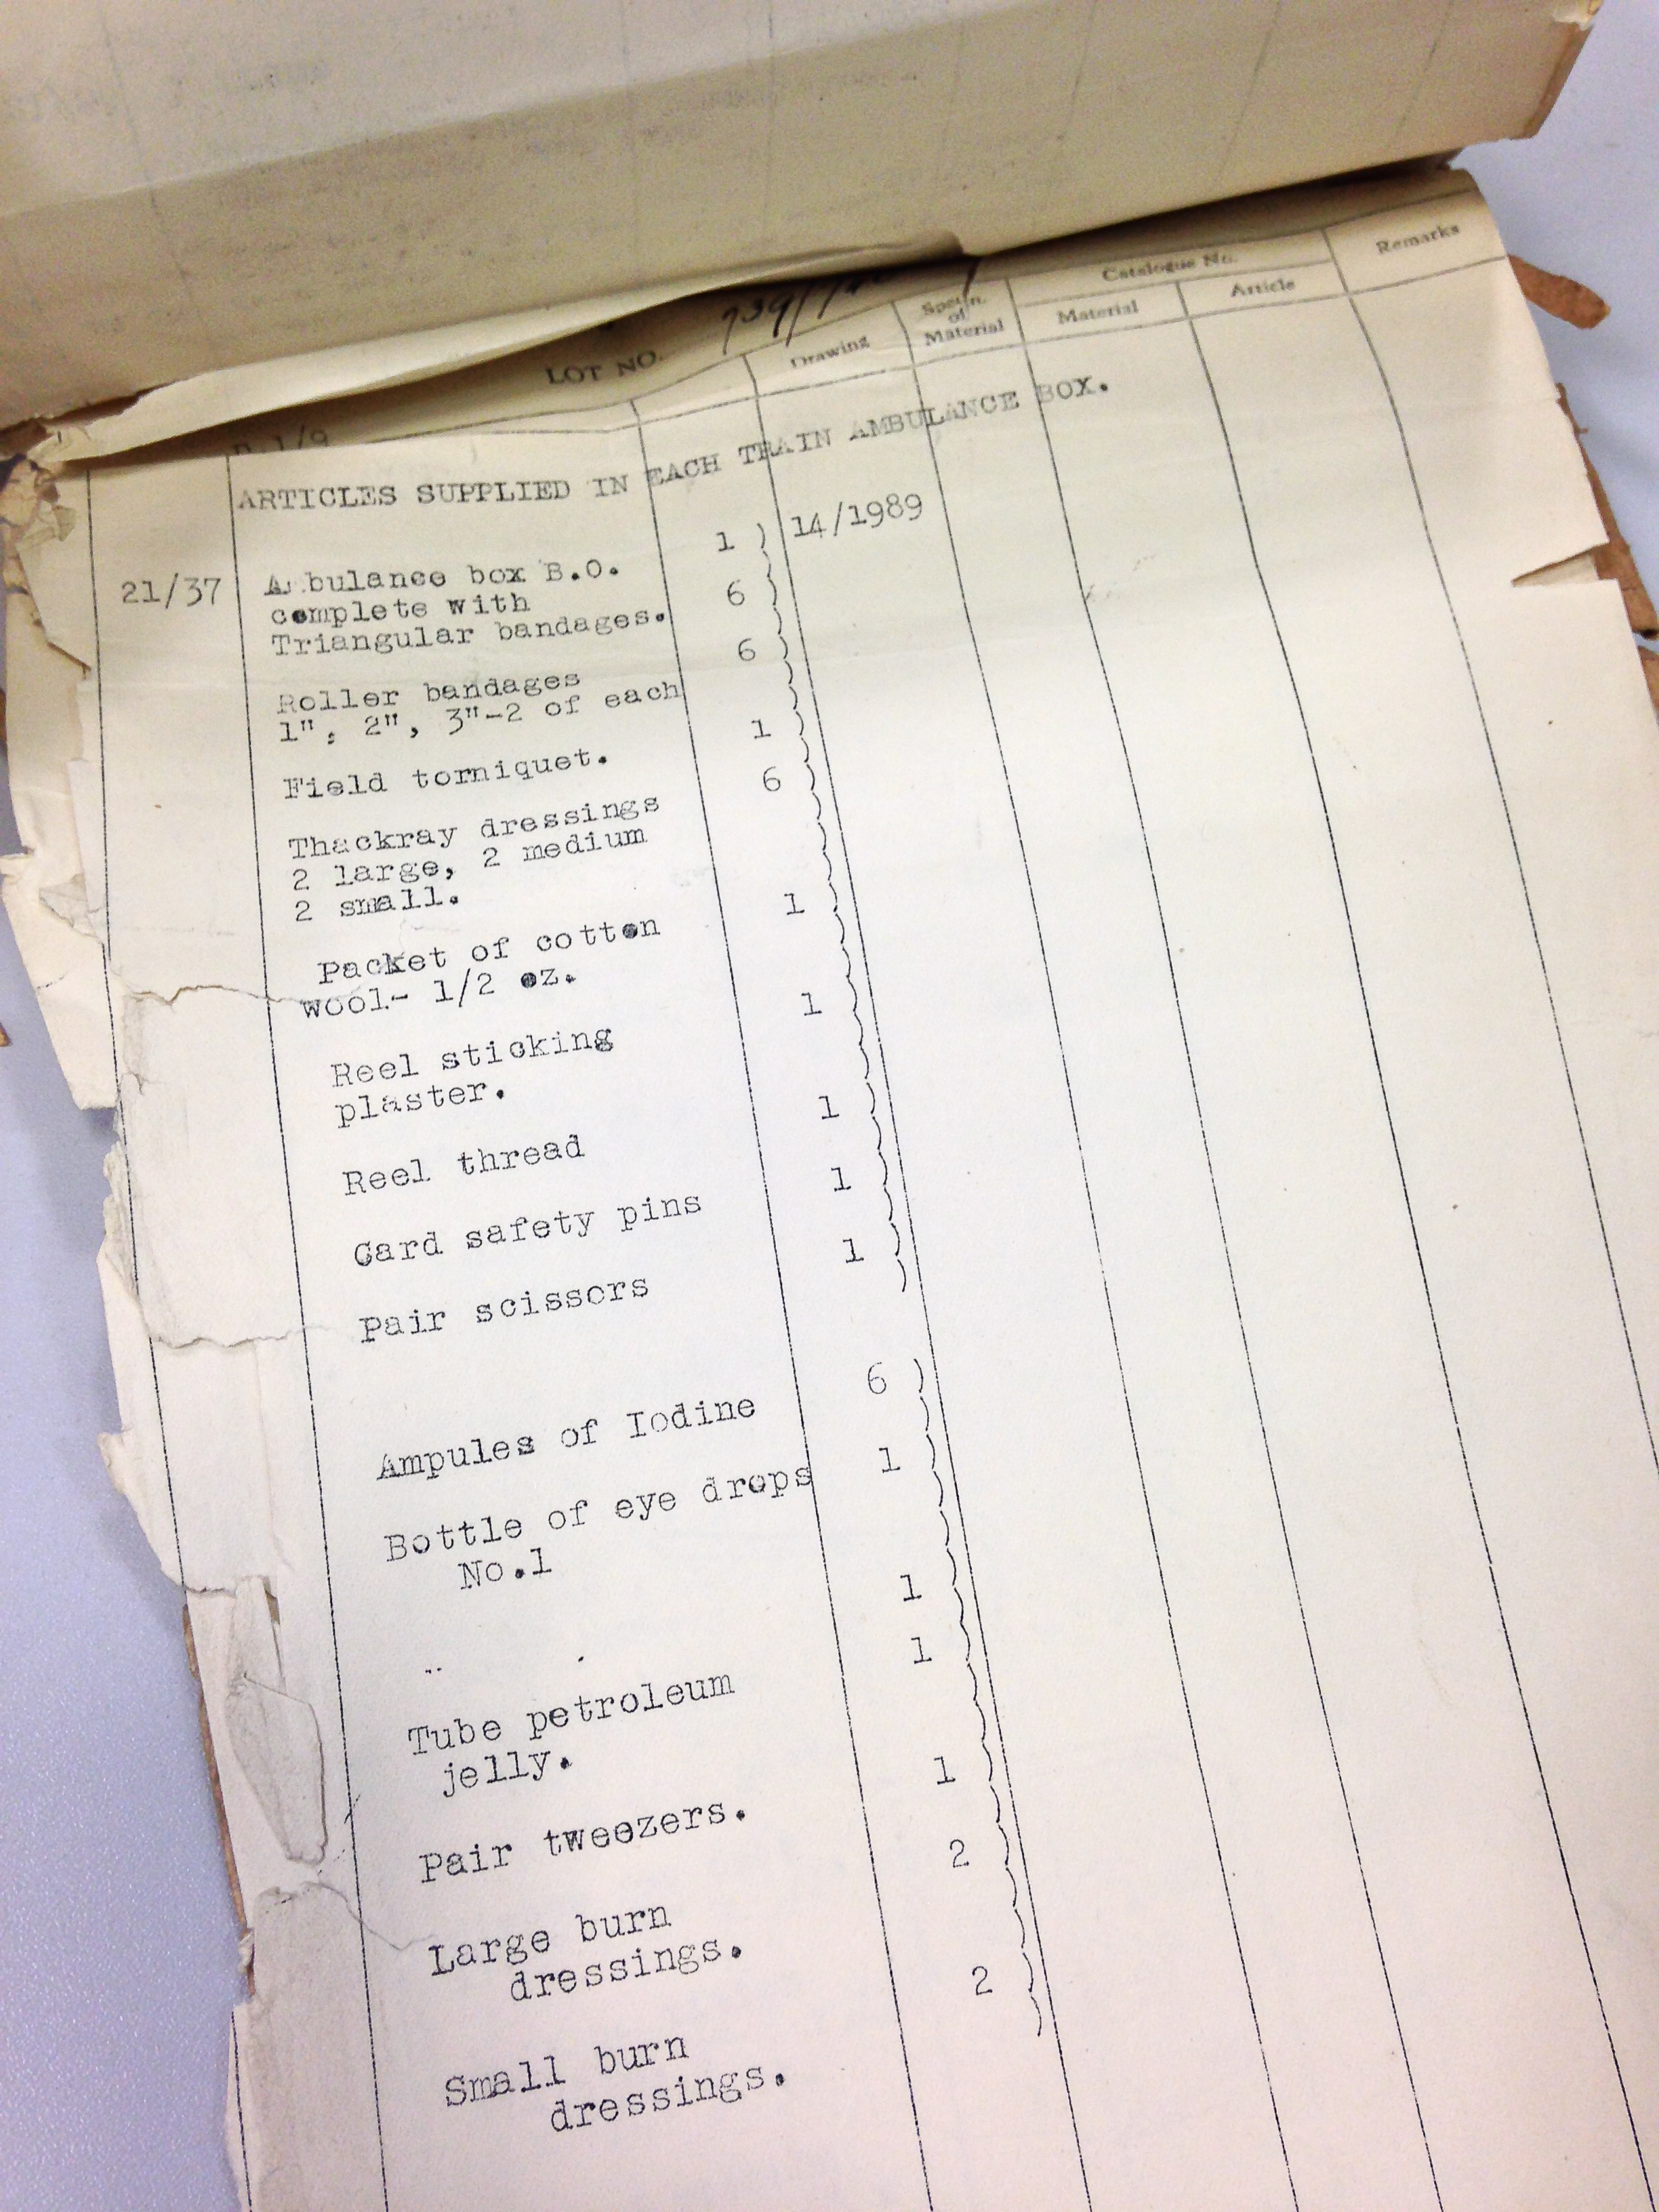 LOT NO.
Drawing
Specn. of Material
Catalogue No.
Material
Article
Remarks
ARTICLES SUPPLIED IN EACH TRAIN AMBULANCE BOX.
21/37 Ambulance box B.O. 1 ) 14/1989
complete with
Triangular bandages. 6
Roller bandages 6
1", 2", 3"-2 of each
Field torniquet. 1
Thackray dressings 6
2 large, 2 medium
2 small.
Packet of cotton 1
wool- 1/2 oz.
Reel sticking 1
plaster.
Reel thread 1
Card safety pins 1
Pair scissors 1
Ampules of Iodine 6
Bottle of eye drops 1
No.1
1
Tube petroleum 1
jelly.
Pair tweezers. 1
Large burn 2
dressings.
Small burn 2
dressings.